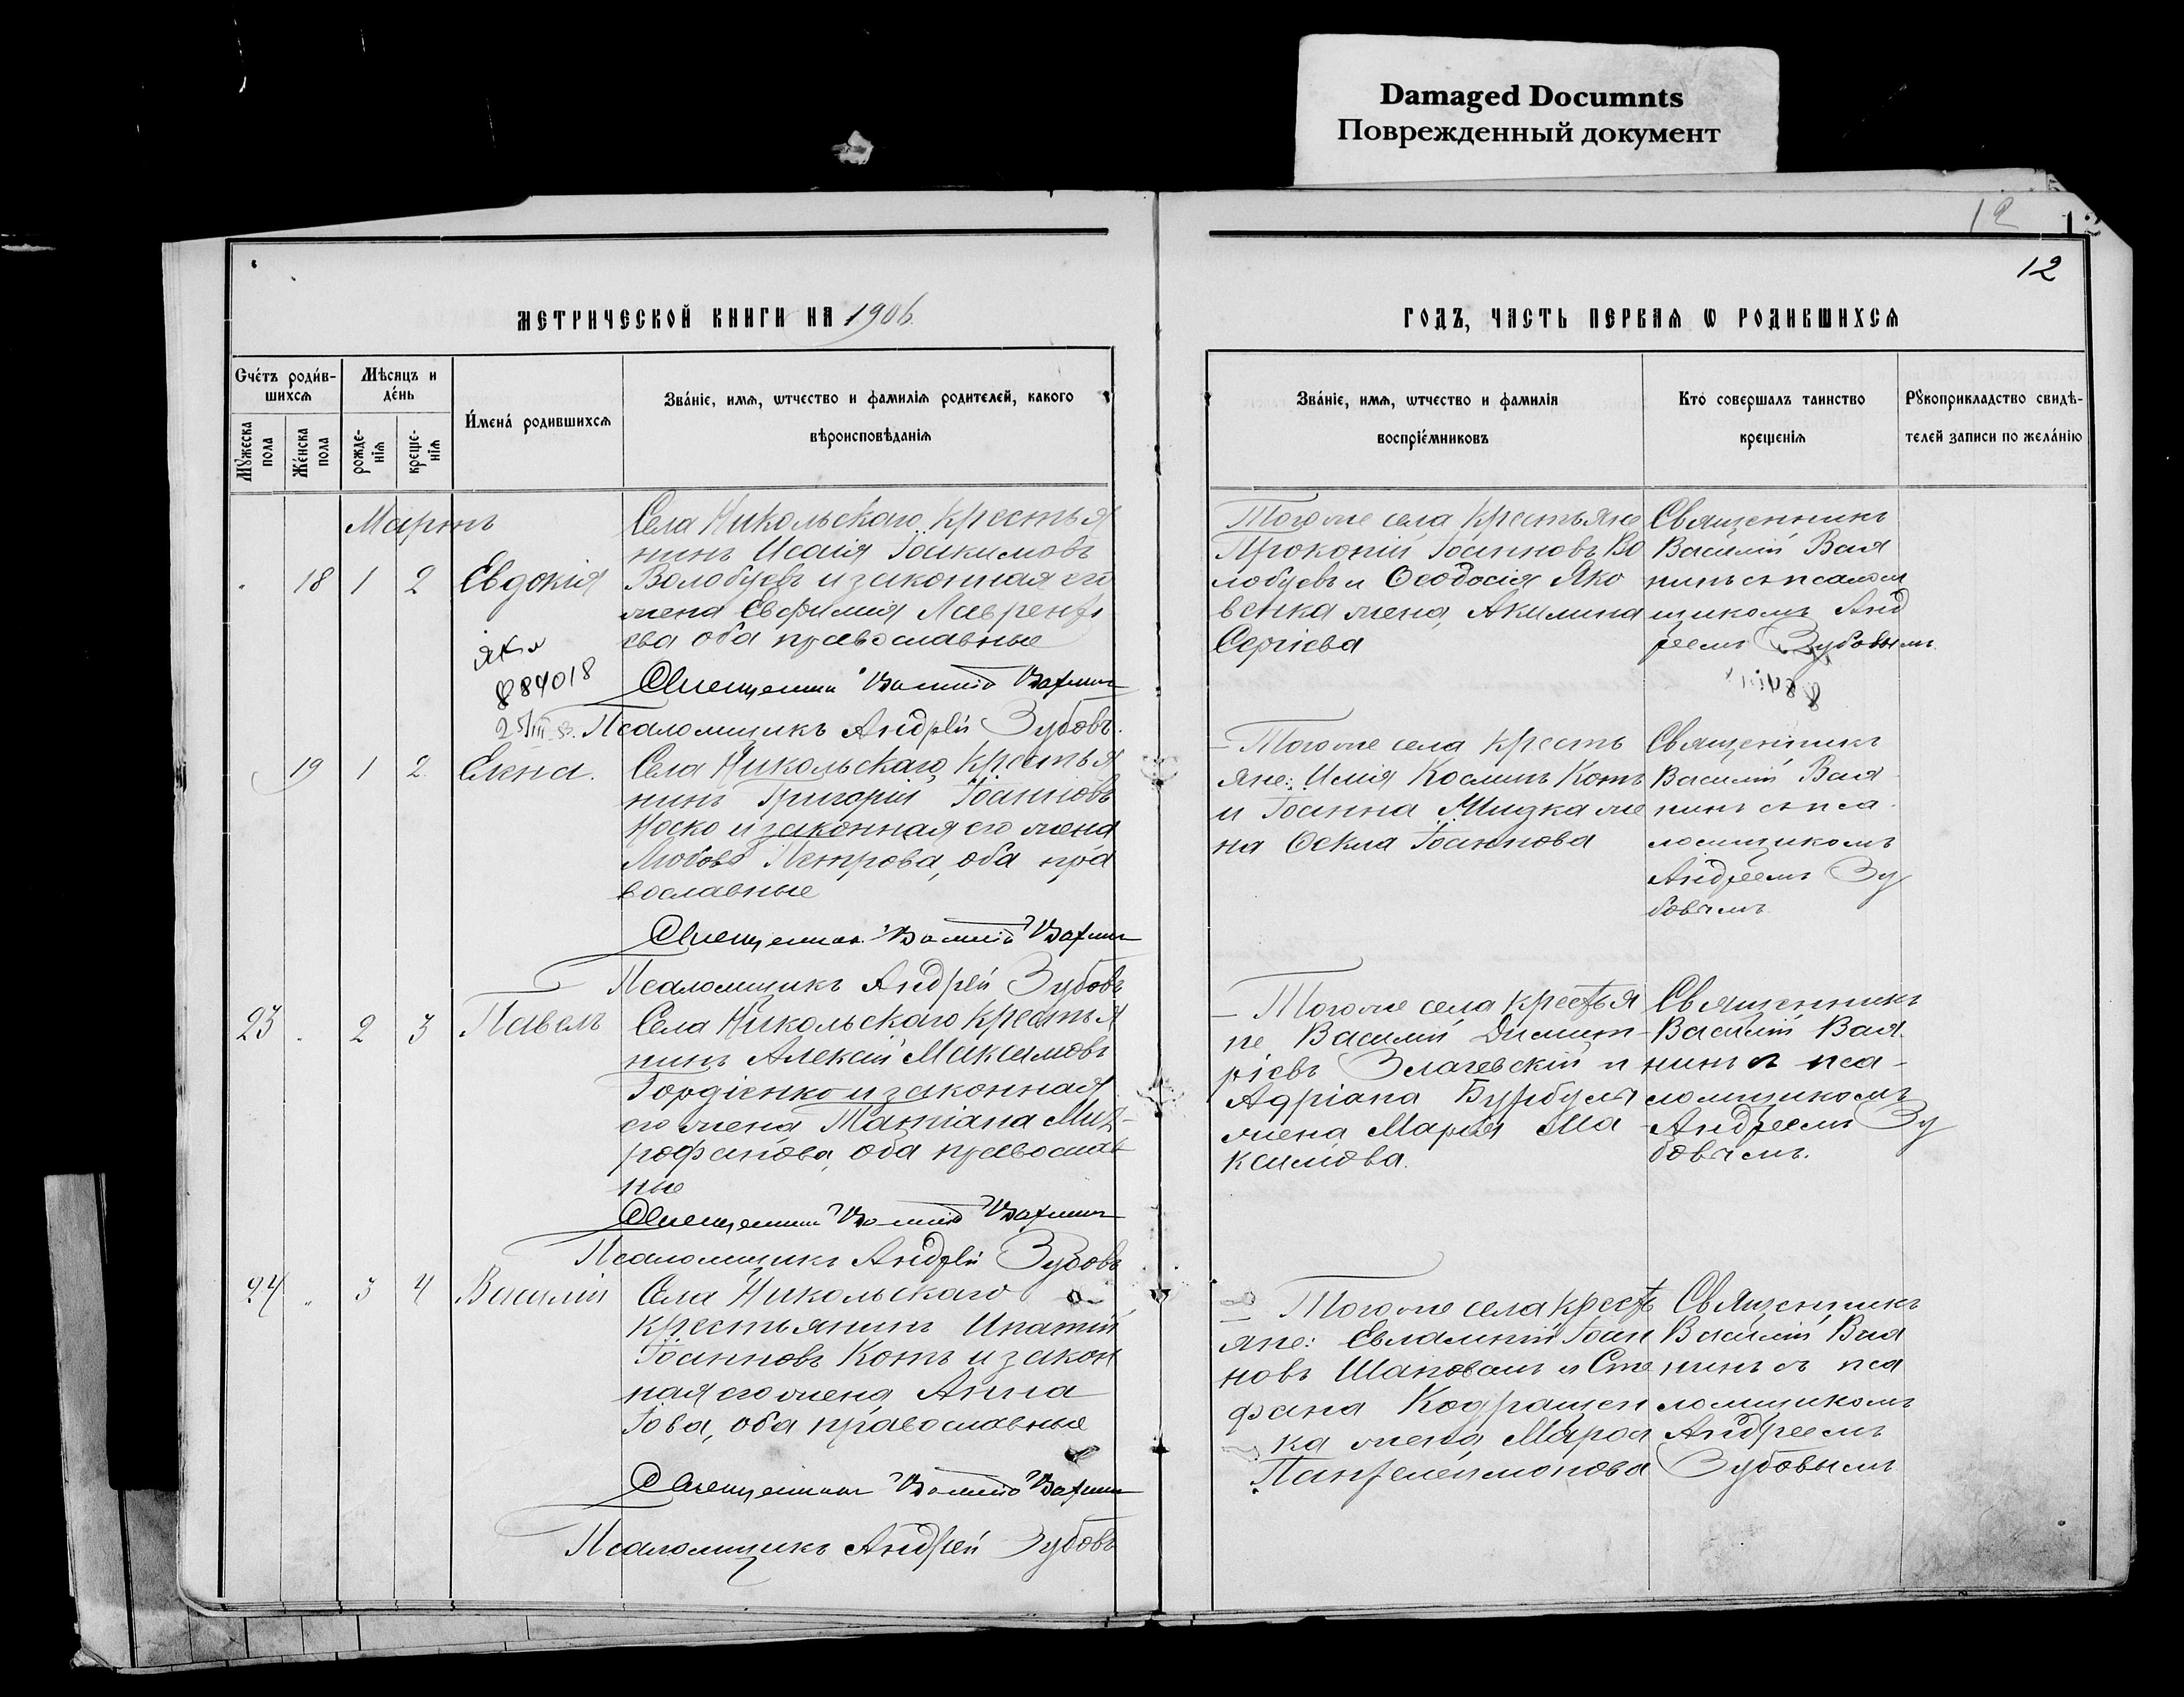 Damaged Documnts
Поврежденный документ
12
12
12
МЕТРИЧЕСКОЙ КНИГИ НА 1906
ГОДЪ, ЧАСТЬ ПЕРВАЯ Ѡ РОДИВШИХСЯ
Счéтъ роди́в-
шихсѧ
Мѣсѧцъ и
дéнь
Мꙋжеска пола
Жéнска пола
рожде-
нїѧ
креще-
нїѧ
И́мена́ родившихсѧ
Звáнїе, имѧ, ѡтчество и фамилїѧ родителей, какого
вѣроисповѣданїѧ
Звáнїе, имѧ, ѡтчество и фамилїѧ
воспрїéмниковъ
Ктó совершалъ таинство
крещенїѧ
Рꙋкоприкладство свидѣ-
телей записи по желáнїю
Мартъ
18 1 2 Евдокія
Села Никольскаго крестья
нинъ Исаія Іоакимовъ
Волобуевъ и законная его
жена Евфимія Лаврентi
ева оба православные
884018
Священник Василій
Псаломщикъ Андрей Зубовъ
Того же села крестьяне
Прокопій Іоанновъ Во
лобуевъ и Ѳеодосія Яко
венка жена Акилина
Сергіева
Священникъ
Василій Вая
нинъ съ псалом
щикомъ Анд
реемъ Зубовымъ
19 1 2 Елена.
Села Никольскаго крестья
нинъ Григорій Іоанновъ
Носко и законная его жена
Любовь Петрова, оба пра
вославные
Священник Василій
Псаломщикъ Андрей Зубовъ
Того же села кресть
яне: Илія Космин Котъ
и Іоанна Мизка же
на Ѳекла Іоаннова
Священникъ
Василій Вая
нинъ съ пса
ломщикомъ
Андреемъ Зу
бовымъ
23 2 3 Павелъ
Села Никольскаго крестья
нинъ Алексій Максимовъ
Гордіенко и законная
его жена Татіана Мит-
рофанова, оба православ
ные
Священник Василій
Псаломщикъ Андрей Зубовъ
Того же села крестья
не Василій Димит-
ріевъ Злачевскій и
Адріана Бурбуля
жена Марія Ма
ксимова.
Священникъ
Василій Вая
нинъ съ пса-
ломщикомъ
Андреемъ Зу
бовымъ.
24 " 3 4 Василій
Села Никольскаго
крестьянинъ Ипатій
Іоанновъ Котъ и закон
ная его жена Анна
Іова, оба православные
Священник Василій
Псаломщикъ Андрей Зубовъ
Того же села кресть
яне: Евлампій Іоан
новъ Шаповалъ и Сте
фана Кодрашен
ка жена Марѳа
Пантелеимонова
Священникъ
Василій Вая
нинъ съ пса
ломщикомъ
Андреемъ
Зубовымъ